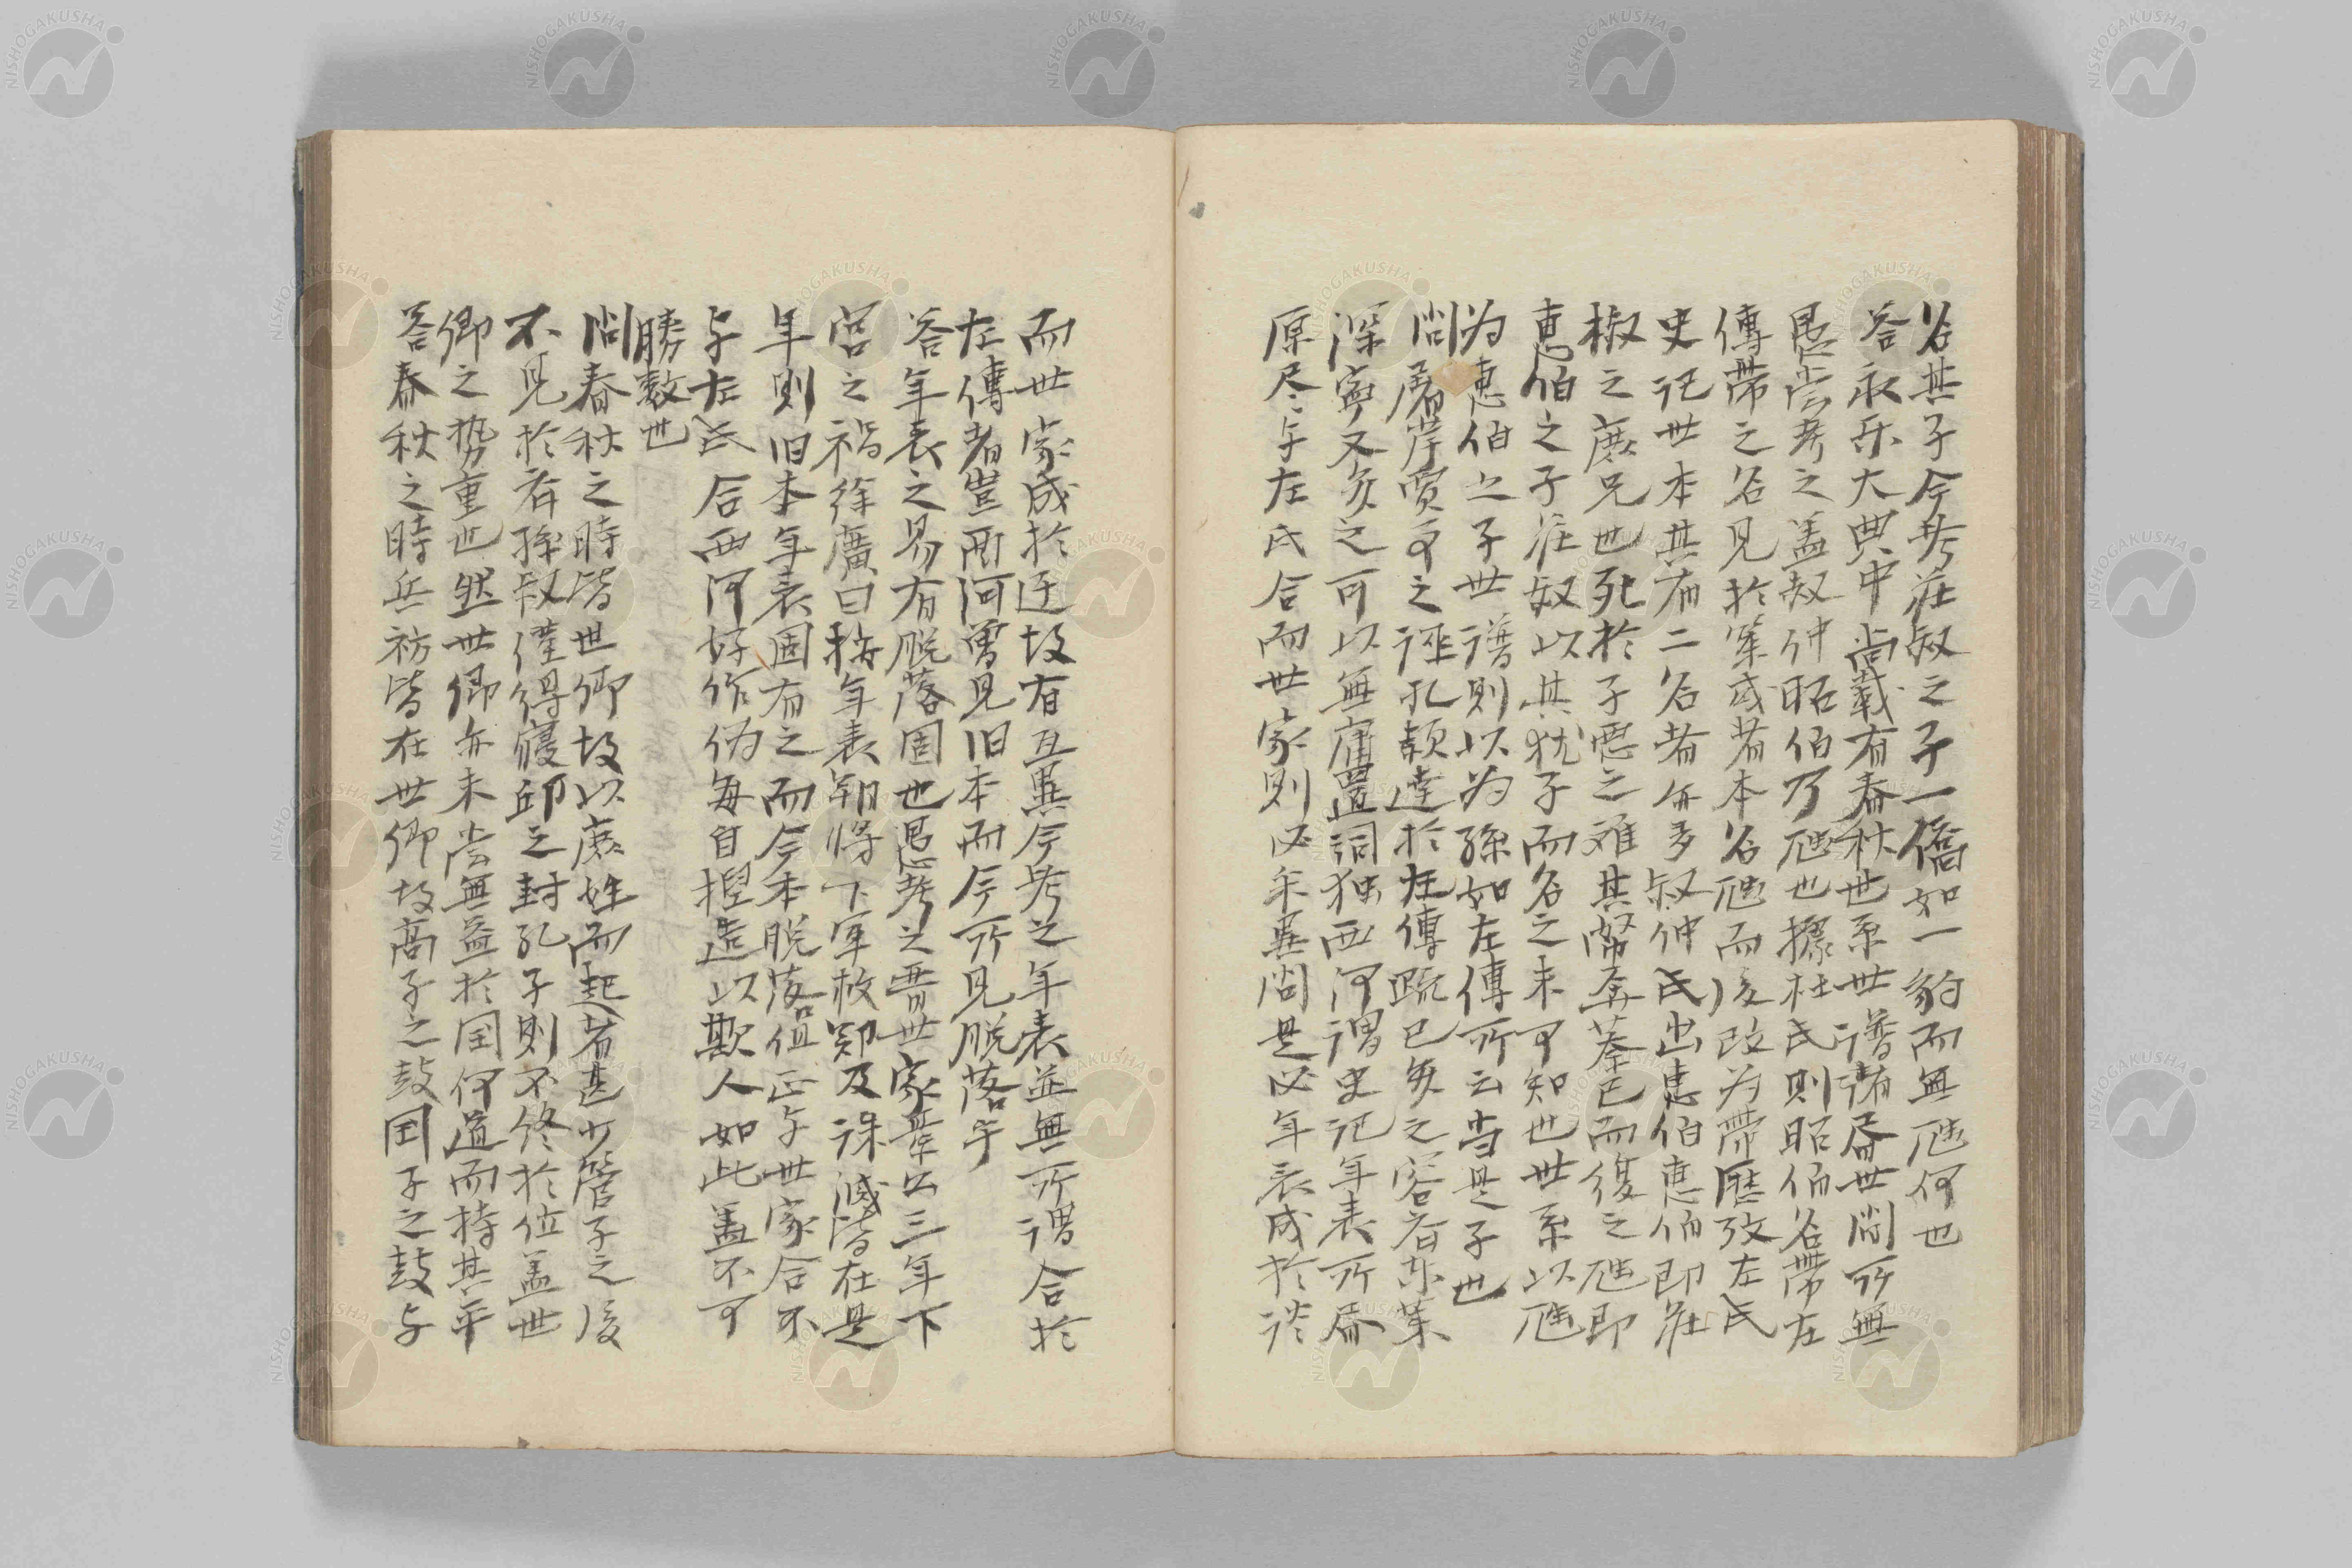 名其子今考莊叔之子一僑如一豹而無虺何也
答永乐大典中尚載有春秋世系世譜諸届世間所無
愚尝考之盖叔仲昭伯乃虺也據杜氏則昭伯名帶左
傳帶之名見於策或者本名虺而後改为帶歷攷左氏
史记世本其有二名者亦多叔仲氏出惠伯惠伯即莊
椒之庶兄也死於子恶之难其帑奔蔡已而復之虺即
惠伯之子莊叔以其犹子而名之未可知也世系以虺
为惠伯之子世譜則以为孫如左傳所云当是子也
问屠岸賈事之诬孔颖達於左傳疏已斥之容斋东莱
深寧又斥之可以無庸置词独西河谓史记年表所届
原尽与左氏合而世家則必采異闻是必年表成於谈
而世家成於迁故有互異今考之年表並無所谓合於
左傳者豈西河曾見旧本而今所見脱落乎
答年表之易有脱落固也愚考之晋世家景公三年下
宫之祸徐廣曰按年表朔将下軍救郑及誅滅皆在是
年則旧本年表固有之而今本脱落但正与世家合不
与左氏合西河好作伪每自揑造以欺人如此盖不可
勝數也
问春秋之時皆世卿故以庶姓而起者甚少管子之後
不見於齐孫叔僅得寢邱之封孔子則不终於位盖世
卿之势重也然世卿亦未尝無益於国何道而持其平
答春秋之時兵枋皆在世卿故高子之鼓国子之鼓与
NISHOGAKUSHA